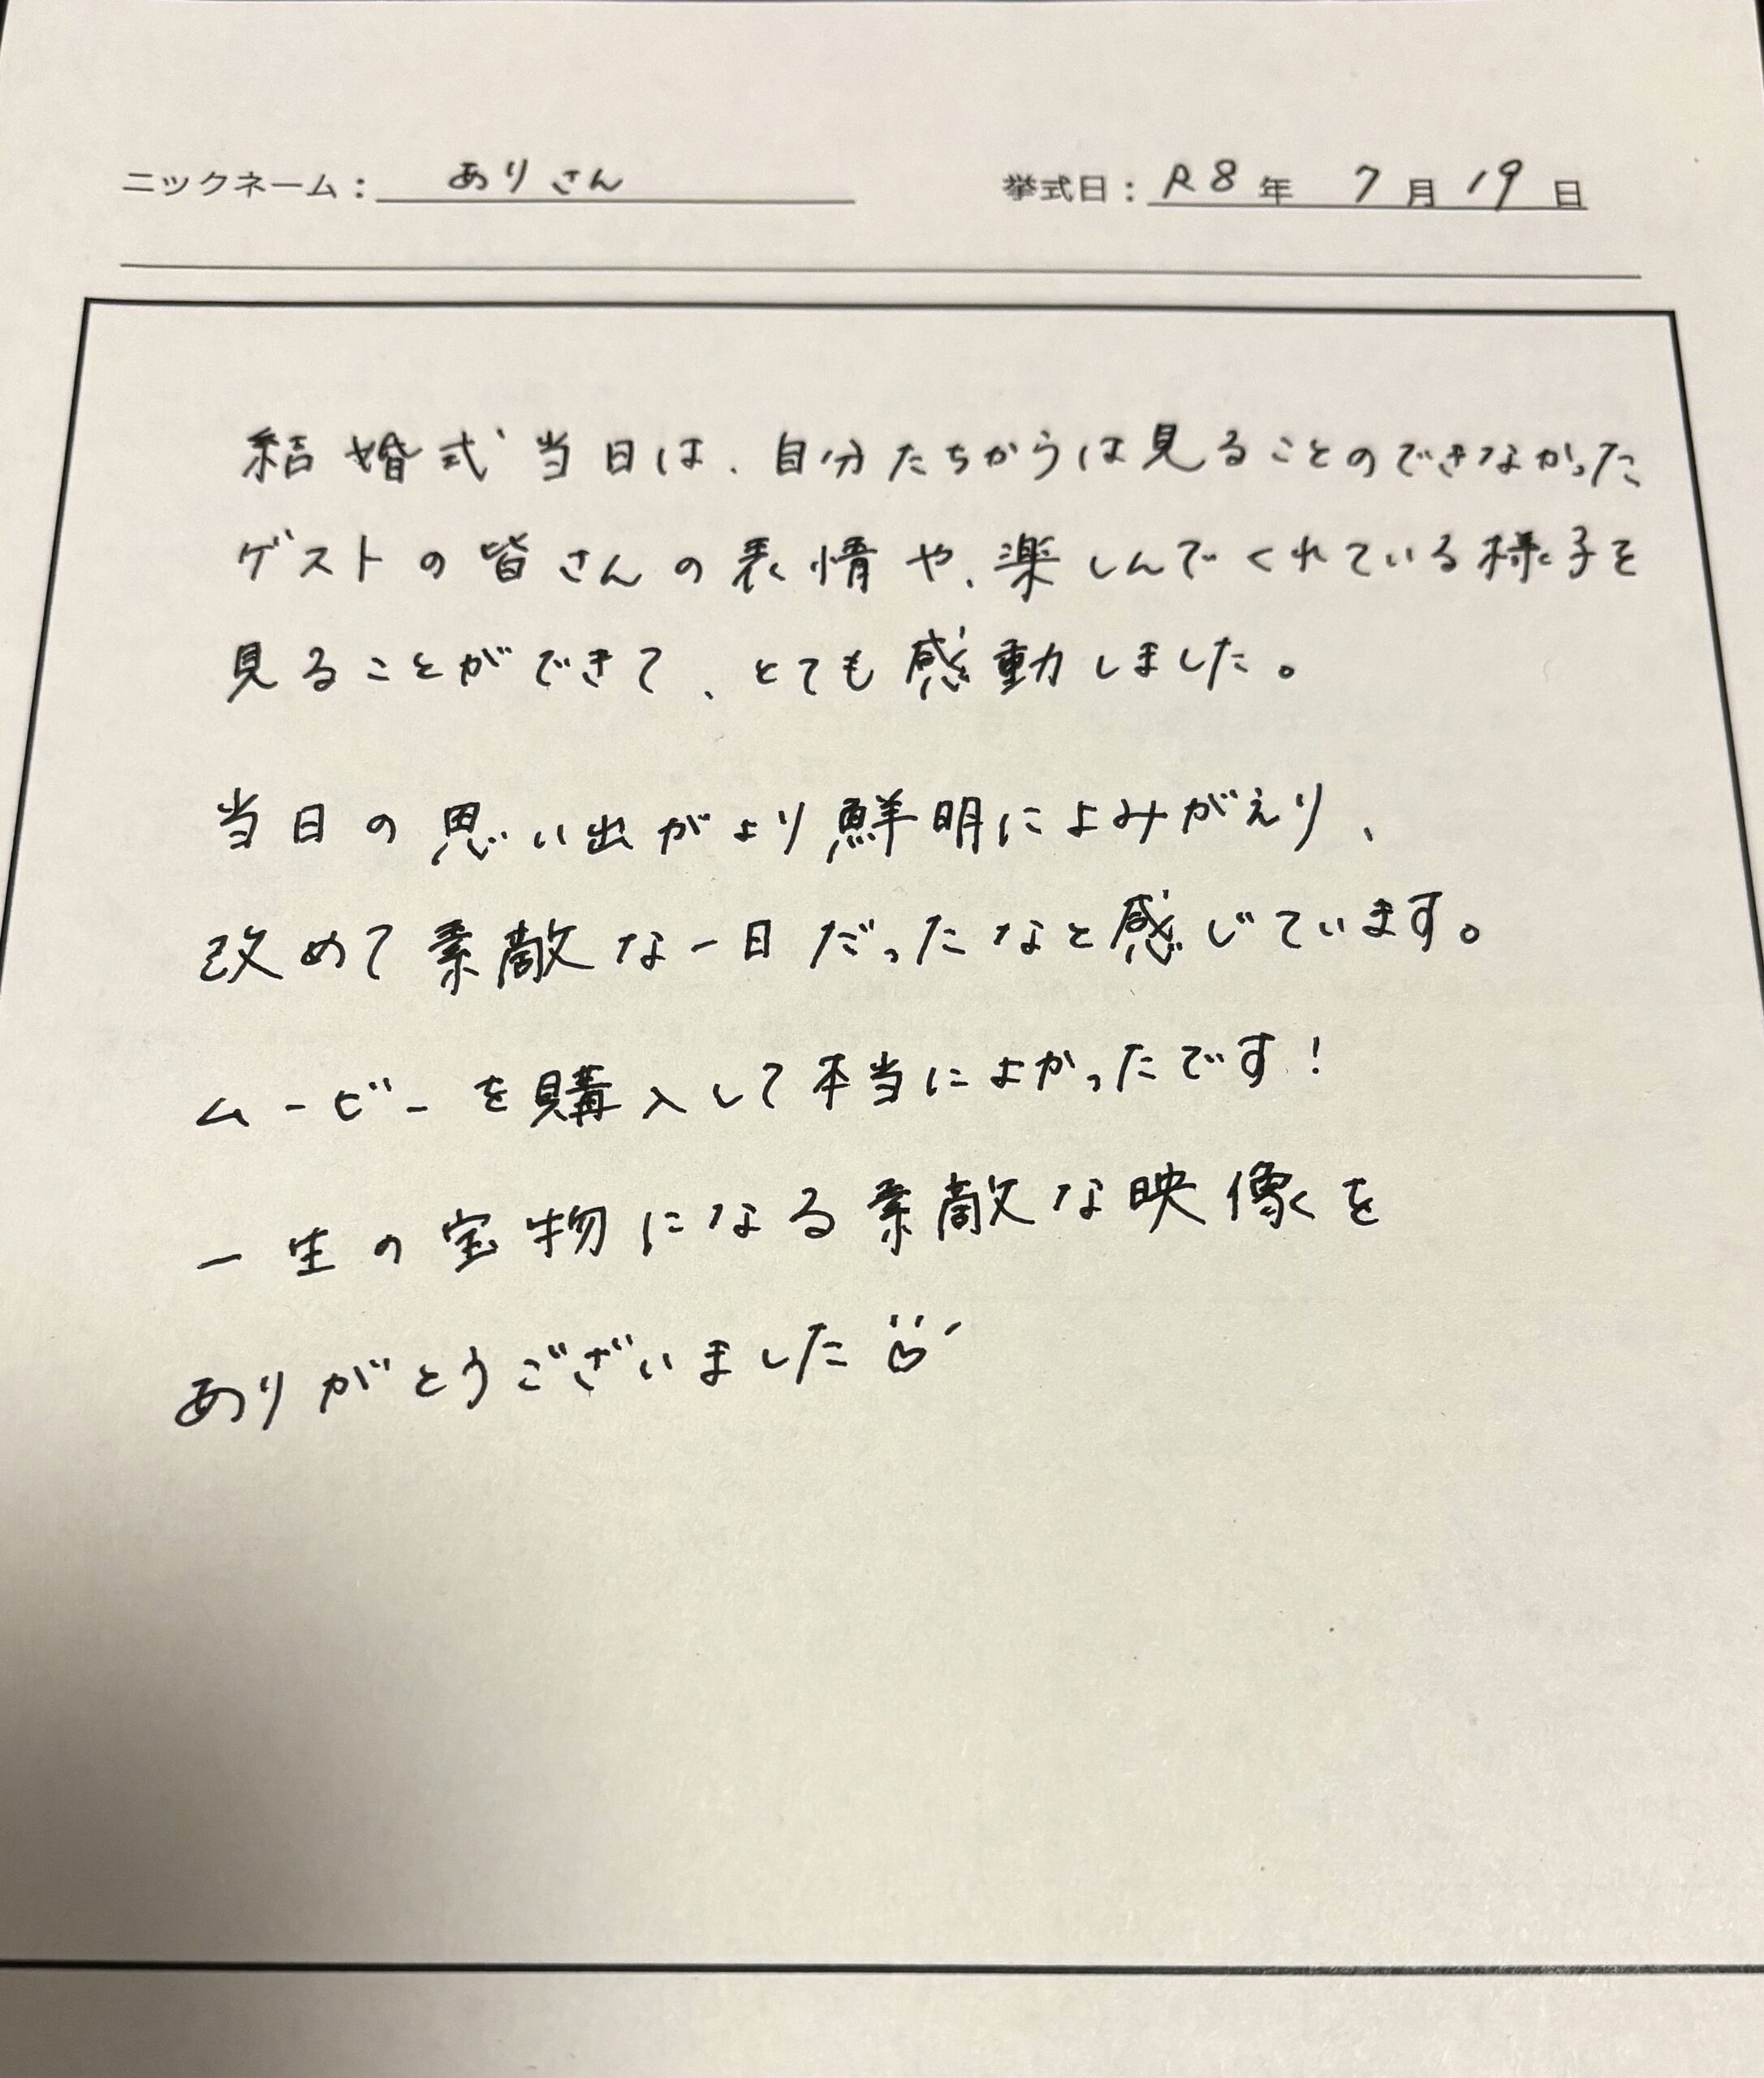 ニックネーム： ありさん 挙式日： R8年 7月19日
結婚式当日は、自分たちからは見ることのできなかった
ゲストの皆さんの表情や、楽しんでくれている様子を
見ることができて、とても感動しました。
当日の思い出がより鮮明によみがえり、
改めて素敵な一日だったなと感じています。
ムービーを購入して本当によかったです！
一生の宝物になる素敵な映像を
ありがとうございました